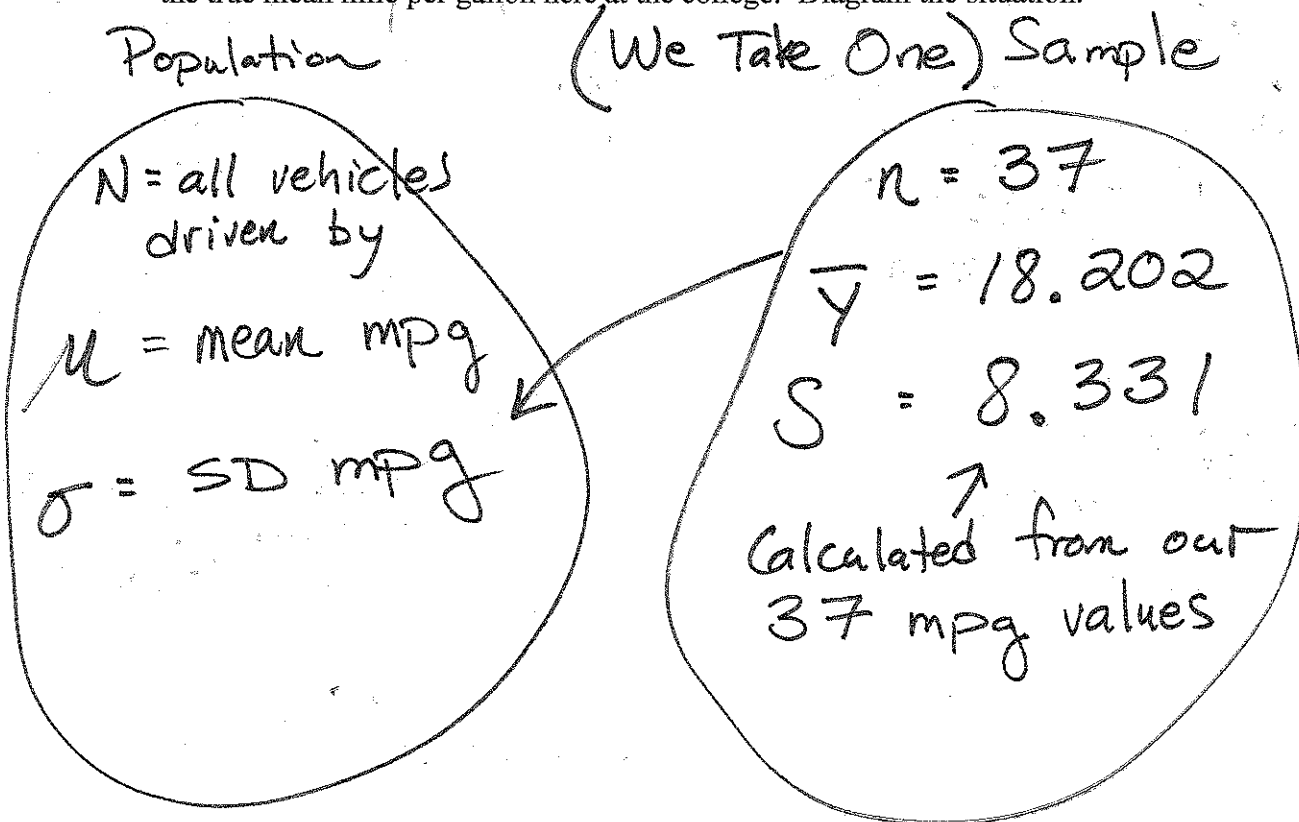 the true mean mile per gallon here at the college. Diagram the situation.
Population
(We Take One) Sample
N = all vehicles
driven by
μ = mean mpg
σ = SD mpg
n = 37
Y̅ = 18.202
S = 8.331
↑
Calculated from our
37 mpg values